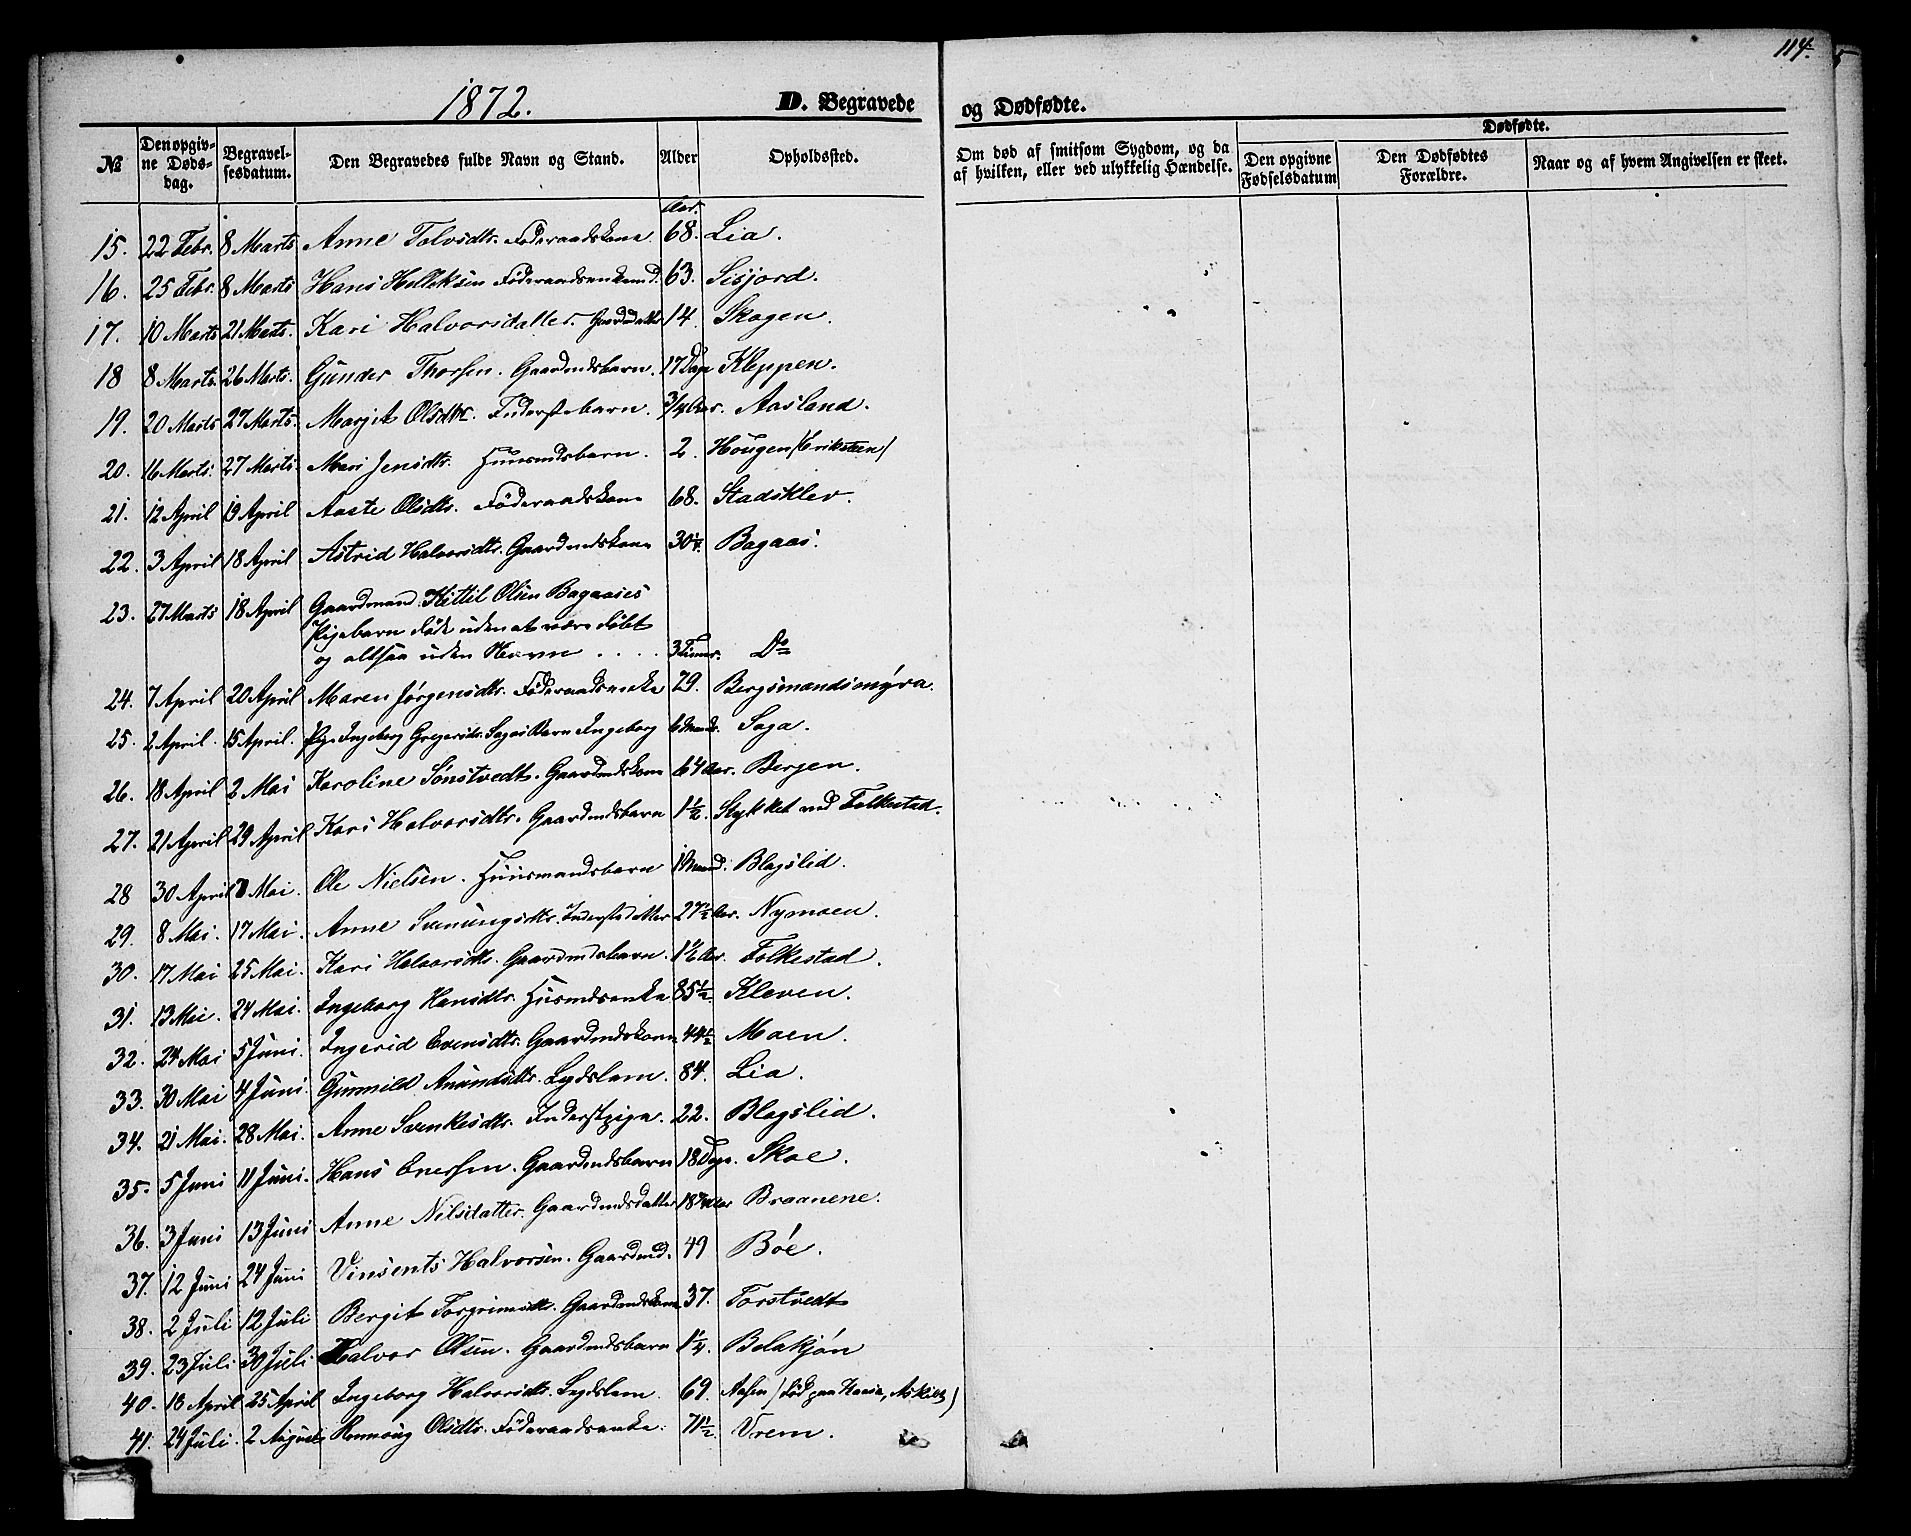 114.
1872.
D. Begravede og Dødfødte.
№ Den opgivne Døds-dag. Begravel-sesdatum. Den Begravedes fulde Navn og Stand. Alder Opholdssted. Om død af smitsom Sygdom, og da af hvilken, eller ved ulykkelig Hændelse. Dødfødte. Den opgivne Fødselsdatum Den Dødfødtes Forældre. Naar og af hvem Angivelsen er skeet.
Aar.
15. 22 Febr. 8 Marts Anne Tolvsdtr. Föderaadskone. 68. Lia.
16. 25 Febr. 8 Marts Hans Helleksen Föderaadsenkemd. 63. Sisjord.
17. 10 Marts 21 Marts. Kari Halvorsdatter. Gaardmdatter 14. Skogen.
18 8 Marts 26 Marts. Gunder Thorsen. Gaardmdsbarn. 17 Dage Kleppen.
19. 20 Marts 27 Marts. Margit Olsdtr. Inderstebarn. 3/4 Aar. Aasland.
20. 16 Marts. 27 Marts. Mari Jensdtr. Huusmdsbarn. 2. Hougen (Eriksteen)
21. 12 April 19 April Aaste Olsdtr. Föderaadskone 68. Stadsklev.
22. 3 April 18 April Astrid Halvorsdtr. Gaardmdskone 30 1/4. Bagaas.
23. 27 Marts 18 April Gaardmand Kittil Olsen Bagaases
Pigebarn død uden at være døbt
og altsaa uden Navn .... 3 Timer. Do
24. 7 April 20 April Maren Jørgensdtr. Föderaadsenke 79. Bergsmandsmyra.
25. 2 April. 15 April. Pige Ingeborg Gregersdtr. Sagas Barn Ingeborg 6 Maand. Saga.
26. 18 April 2 Mai Karoline Sönstvedt. Gaardmdskone 64 Aar. Bergen.
27. 21 April 29 April Kari Halvorsdtr. Gaardmdsbarn 1 1/2. Stykket ved Folkestad.
28 30 April 7 Mai. Ole Nielsen. Huusmandsbarn 1 Maand. Blagslid.
29. 8 Mai. 17 Mai. Anne Svenungsdtr. Inderstdatter 27 1/2 Aar. Nymoen.
30. 17 Mai 25 Mai. Kari Halvorsdtr. Gaardmdsbarn. 1 1/2 Aar. Folkestad.
31. 13 Mai. 24 Mai. Ingeborg Hansdtr. Husmdsenke 85 1/2 Kleven.
32. 24 Mai 5 Juni. Ingerid Evensdtr. Gaardmdskone 44 1/2 Moen.
33. 30 Mai 4 Juni. Gunnild Anundsdtr. Lægdslem. 84. Lia.
34. 21 Mai. 28 Mai. Anne Svenkesdtr. Inderstpige. 22. Blagslid.
35. 5 Juni 11 Juni. Hans Enersen. Gaardmdsbarn 18 Dage. Skoe.
36. 3 Juni 13 Juni Anne Nilsdatter. Gaardmdsdatter 18 3/4 Aar Braanene.
37. 12 Juni 24 Juni Vinsents Halvorsen. Gaardmd. 49 Böe.
38. 2 Juli 12 Juli Bergit Torgrimsdtr. Gaardmdskone 37. Torstvedt
39. 23 Juli 30 Juli Halvor Olsen. Gaardmdsbarn 1 1/4. Bolakjøn
40. 16 April 25 April Ingeborg Halvorsdtr. Lægdslem. 69. Aasen (død paa Haasa, Askilts)
41. 24 Juli. 2 August Rannoug Olsdtr. Föderaadsenke. 71 1/2. Vrem.